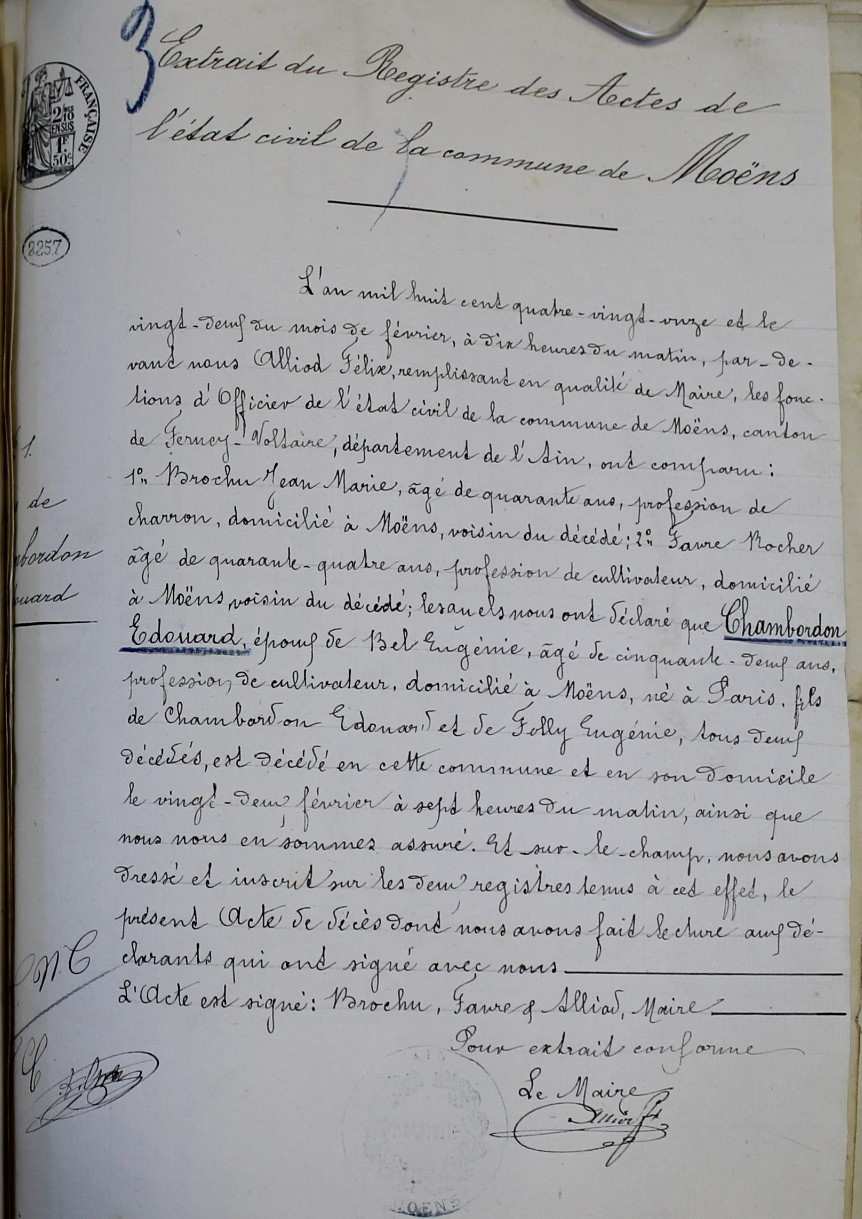 3
Extrait du Registre des Actes de
l'état civil de la commune de Moëns
FRANÇAISE
2/10
EN SUS
1F
50c
2257
L'an mil huit cent quatre-vingt-onze et le
vingt-deux du mois de février, à dix heures du matin, par-de-
vant nous Alliod Félix, remplissant en qualité de Maire, les fonc-
tions d'Officier de l'état civil de la commune de Moëns, canton
de Ferney-Voltaire, département de l'Ain, ont comparu:
1º Brochu Jean Marie, âgé de quarante ans, profession de
charron, domicilié à Moëns, voisin du décédé; 2º Favre Rocher
âgé de quarante-quatre ans, profession de cultivateur, domicilié
à Moëns, voisin du décédé; lesquels nous ont déclaré que Chambordon
Edouard, époux de Bel Eugénie, âgé de cinquante-deux ans,
profession de cultivateur, domicilié à Moëns, né à Paris, fils
de Chambordon Edouard et de Folly Eugénie, tous deux
décédés, est décédé en cette commune et en son domicile
le vingt-deux février à sept heures du matin, ainsi que
nous nous en sommes assuré. Et sur-le-champ, nous avons
dressé et inscrit sur les deux registres tenus à cet effet, le
présent Acte de décès dont nous avons fait lecture aux dé-
clarants qui ont signé avec nous
L'Acte est signé: Brochu, Favre & Alliod, Maire
Pour extrait conforme
Le Maire
1.
de
mbordon
ouard
MOËNS